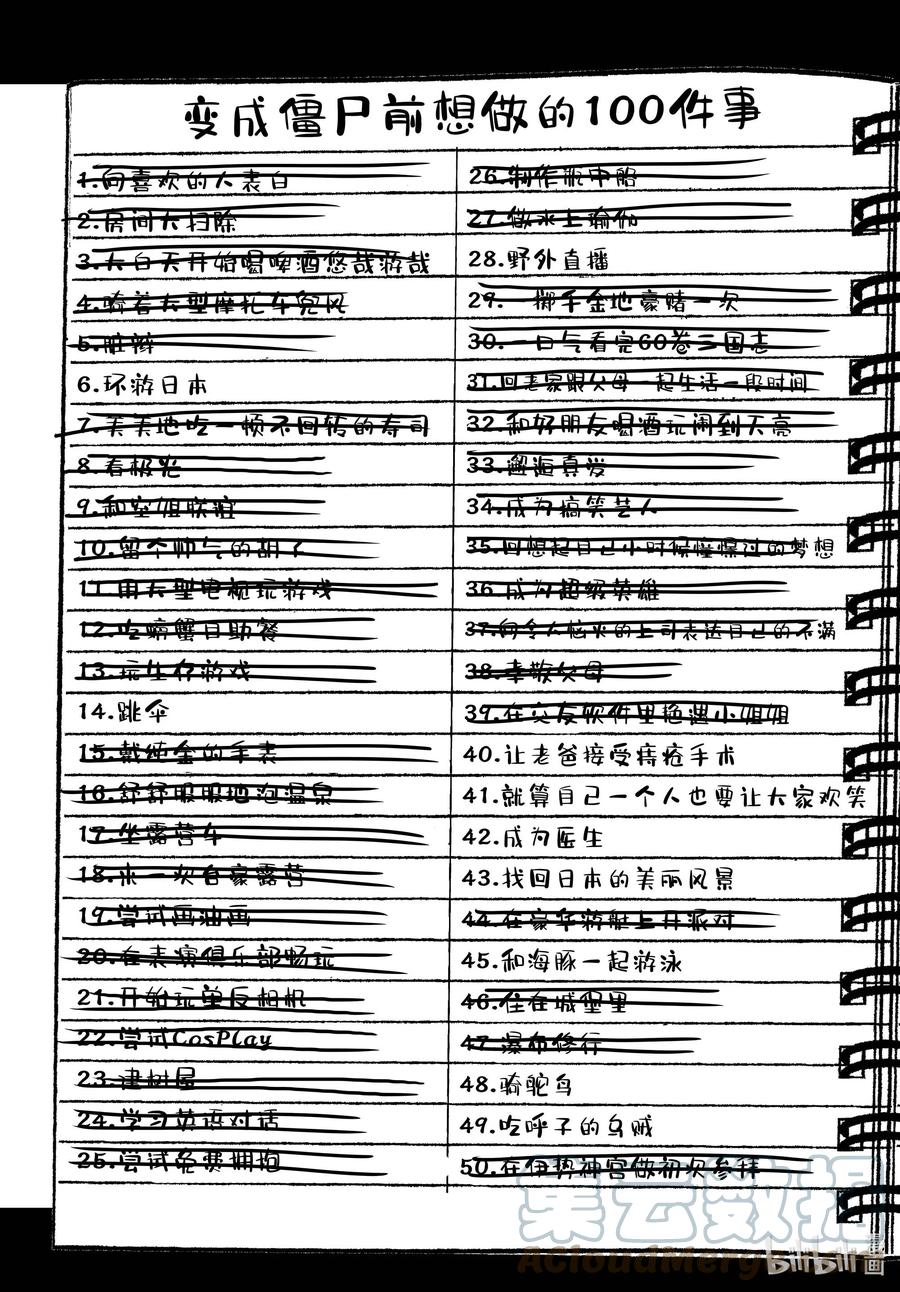 变成僵尸前想做的100件事
1.向喜欢的人表白
2.房间大扫除
3.大白天开始喝啤酒悠哉游哉
4.骑着大型摩托车兜风
5.脏辫
6.环游日本
7.美美地吃一顿不回转的寿司
8.看极光
9.和空姐联谊
10.留个帅气的胡子
11.用大型电视玩游戏
12.吃螃蟹自助餐
13.玩生存游戏
14.跳伞
15.戴纯金的手表
16.舒舒服服地泡温泉
17.坐露营车
18.来一次自豪露营
19.尝试画油画
20.在表演俱乐部畅玩
21.开始玩单反相机
22.尝试CosPlay
23.建树屋
24.学习英语对话
25.尝试免费拥抱
26.制作瓶中船
27.做水上瑜伽
28.野外直播
29.一掷千金地豪赌一次
30.一口气看完60卷三国志
31.回老家跟父母一起生活一段时间
32.和好朋友喝酒玩闹到天亮
33.邂逅真爱
34.成为搞笑艺人
35.回想起自己小时候憧憬过的梦想
36.成为超级英雄
37.向令人恼火的上司表达自己的不满
38.孝敬父母
39.在交友软件里艳遇小姐姐
40.让老爸接受痔疮手术
41.就算自己一个人也要让大家欢笑
42.成为医生
43.找回日本的美丽风景
44.在豪华游艇上开派对
45.和海豚一起游泳
46.住在城堡里
47.瀑布修行
48.骑鸵鸟
49.吃呼子的乌贼
50.在伊势神宫做初次参拜
集云数据
ACloudMerge
bilibili漫画